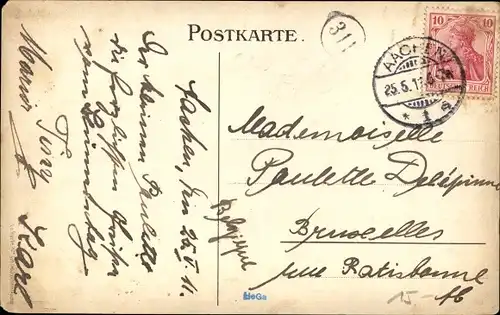 POSTKARTE.
311
AACHEN
25.5.11
* 1 s
10 10
DEUTSCHES REICH
Aachen, den 25. V. 11.
Der kleinen Paulette
die herzlichsten Grüsse
zum Namenstag
Karl
Mademoiselle
Paulette Delépinne
Bruxelles
rue Ratisbonne
16
15
Belgique
HeGa